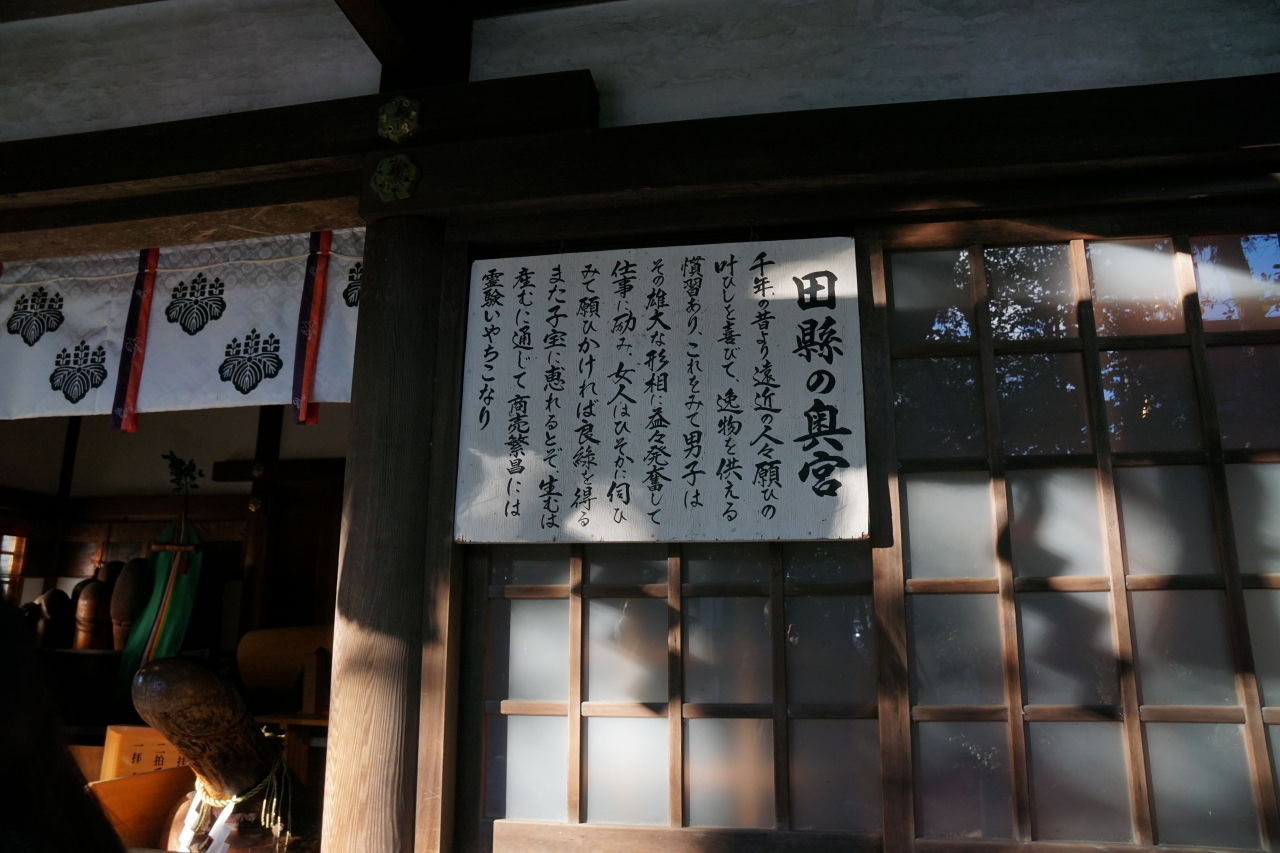 田縣の奥宮
千年の昔より遠近の人々願ひの
叶ひしを喜びて、逸物を供える
慣習あり、これをみて男子は
その雄大な形相に益々発奮して
仕事に励み、女人はひそかに伺ひ
みて願ひかければ良縁を得る
また子宝に恵れるとぞ、生むは
産むに通じて商売繁昌には
霊験いやちこなり
一拝
二拍
拝